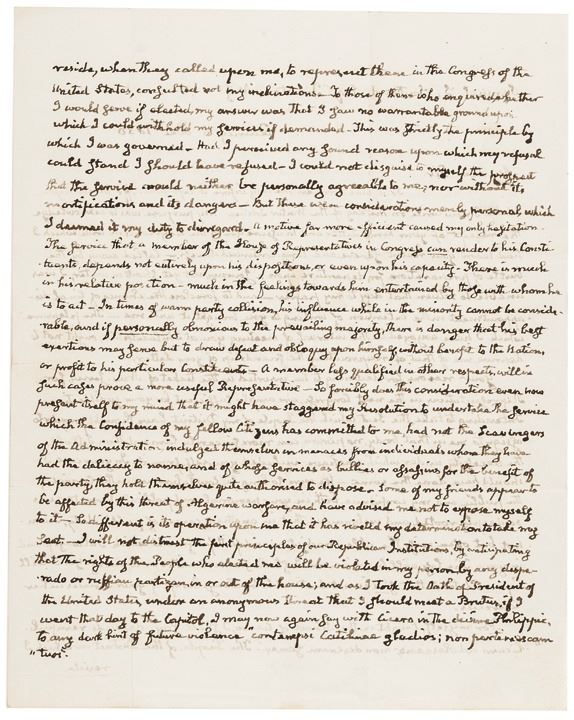 reside, when they called upon me, to represent them in the Congress of the
United States, consulted not my inclinations. To those of them who enquired whether
I would serve if elected, my answer was that I saw no warrantable ground upon
which I could withhold my services if demanded. This was strictly the principle by
which I was governed. Had I perceived any sound reason upon which my refusal
could stand I should have refused. I could not disguise to myself the prospect
that the service would neither be personally agreeable to me, nor without its
mortifications and its dangers. But these were considerations merely personal which
I deemed it my duty to disregard. A motive far more efficient caused my only hesitation.
The service that a member of the House of Representatives in Congress can render to his Consti-
tuents, depends not entirely upon his dispositions, or even upon his capacity. There is much
in his relative position - much in the feelings towards him entertained by those with whom he
is to act. In times of warm party collision, his influence while in the minority cannot be conside-
rable, and if personally obnoxious to the prevailing majority, there is danger that his best
exertions may serve but to draw defeat and obloquy upon himself without benefit to the Nation,
or profit to his particular Constituents. A member less qualified in other respects, will in
such cases prove a more useful Representative. So forcibly does this consideration even now
present itself to my mind that it might have staggered my Resolution to undertake the service
which the Confidence of my fellow Citizens has committed to me, had not the Scavengers
of the Administration indulged themselves in menaces from individuals whom they have
had the delicacy to name, and of whose services as bullies or assassins for the benefit of
the party, they hold themselves quite authorised to dispose. Some of my friends appear to
be affected by this threat of Algerine warfare, and have advised me not to expose myself
to it. So different is its operation upon me that it has riveted my determination to take my
Seat. I will not distrust the first principles of our Republican Institutions, by anticipating
that the rights of the People who elected me will be violated in my person by any despe-
rado or ruffian partizan, in or out of the house; and as I took the Oath of President of
the United States, under an anonymous threat that I should meet a Brutus, if I
went that day to the Capitol, I may now again say with Cicero in the divine Philippic,
to any dark hint of future violence "contempsi Catilinae gladios; non pertimescam
"tuos".